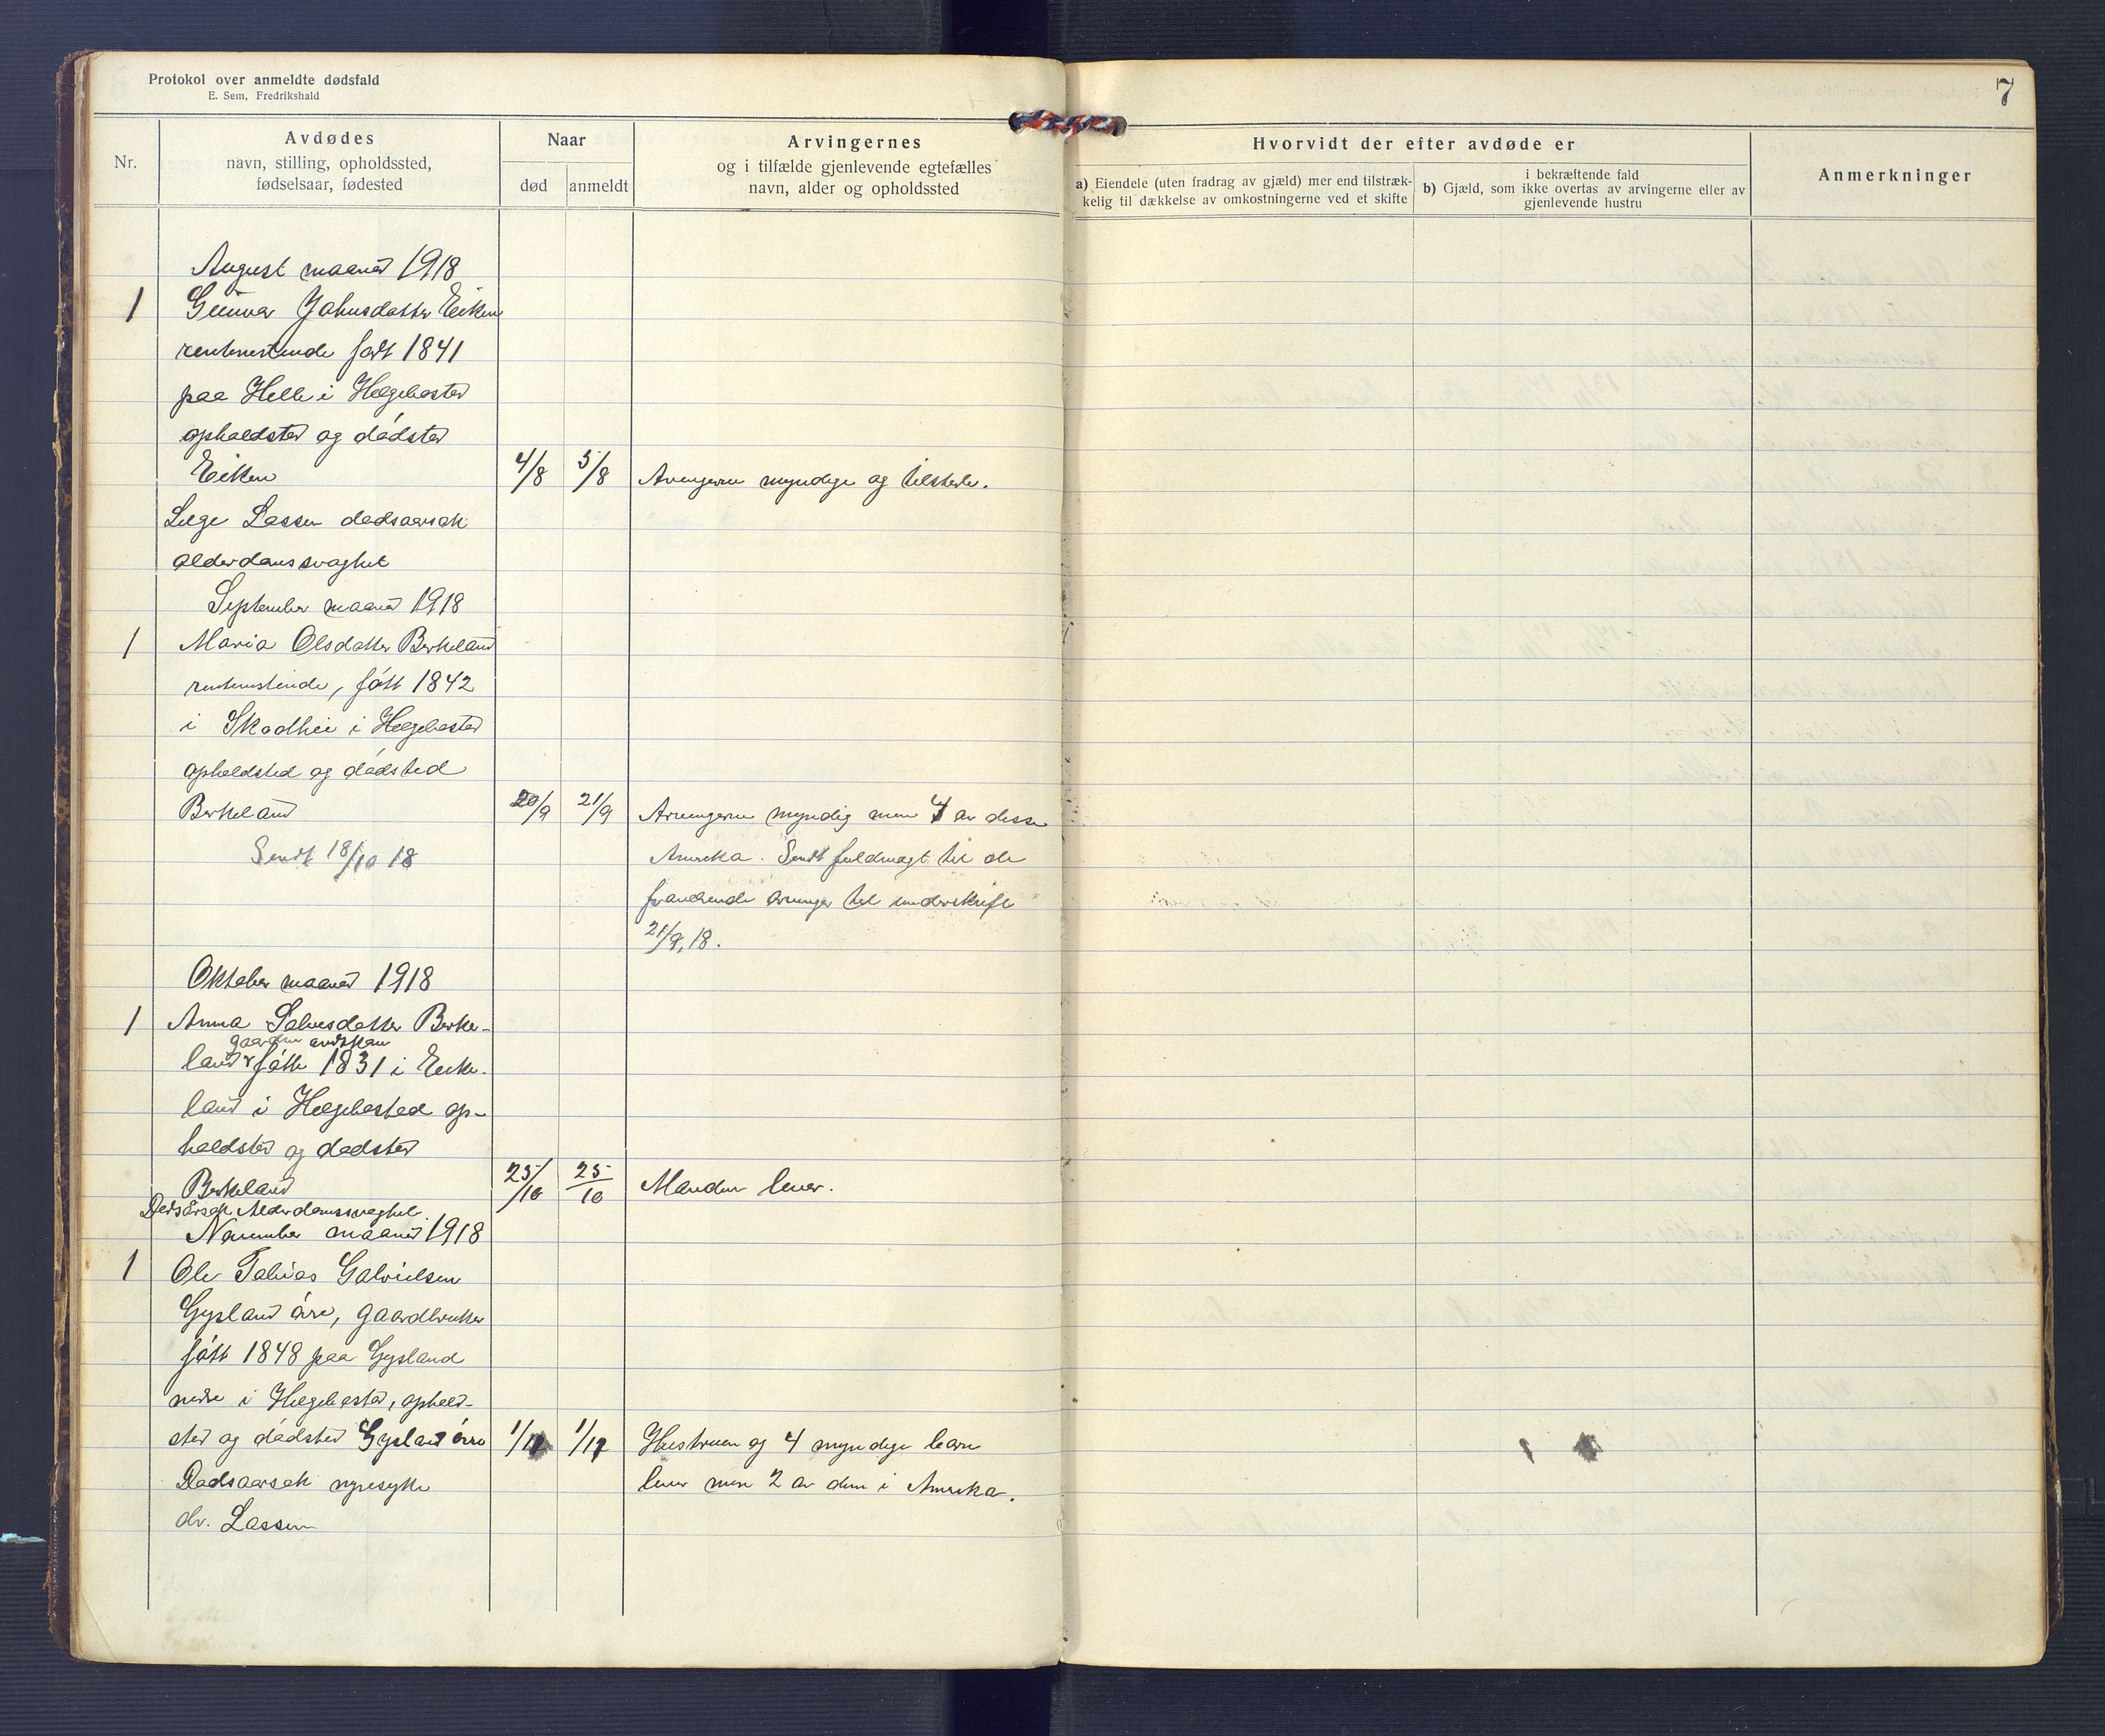 Protokol over anmeldte dødsfald
E. Sem, Fredrikshald
7
Nr.
Avdødes
navn, stilling, opholdssted,
fødselsaar, fødested
Naar
død
anmeldt
Arvingernes
og i tilfælde gjenlevende egtefælles
navn, alder og opholdssted
Hvorvidt der efter avdøde er
a) Eiendele (uten fradrag av gjæld) mer end tilstræk-
kelig til dækkelse av omkostningerne ved et skifte
i bekræftende fald
b) Gjæld, som ikke overtas av arvingerne eller av
gjenlevende hustru
Anmerkninger
August maaned 1918
1 Gunvor Jahnsdatter Eiken
rentenistinde født 1841
paa Helle i Hægebosted
opholdsted og dødsted
Eiken 4/8 5/8 Arvingerne myndige og tilstede.
Læge Lassen dødsaarsak
alderdomssvaghet
September maaned 1918
1 Maria Olsdatter Berkeland
rentenistinde, født 1842
i Skodhei i Hægebosted
opholdsted og dødsted
Berkeland 20/9 21/9 Arvingerne myndig men 4 av disse
Sendt 18/10 18 Amerika. Sendt fuldmagt til de
fraværende arvinger til underskrift
21/9, 18.
Oktober maaned 1918
1 Anna Salvesdatter Berke-
gaardm enkekau
land født 1831 i Eike-
land i Hægebosted op-
holdsted og dødsted
Berkeland 25/10 25/10 Manden lever.
Dødsårsak Alderdomssvaghet
November maaned 1918
1 Ole Tobias Gabrielsen
Gysland øvre, gaardbruker
født 1848 paa Gysland
nedre i Hægebosted, ophold-
sted og dødsted Gysland øvre 1/11 1/11 Hustruen og 4 myndige barn
Dødsaarsak nyresyke lever men 2 av dem i Amerika.
dr. Lassen